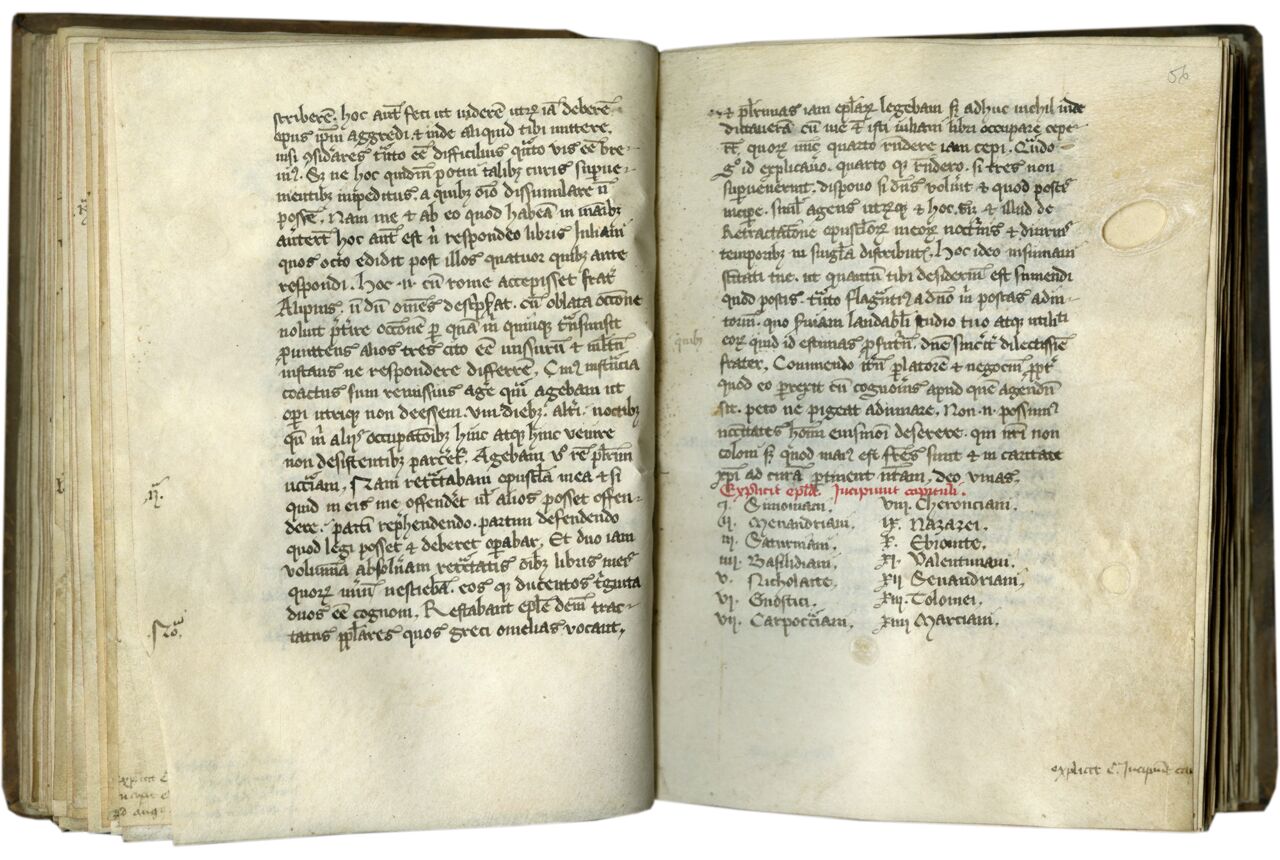 scriberē. hoc aut̄ feci ut uiderē utꝝ iā deberē
opus ip̄m aggredi ⁊ inde aliquid tibi mittere.
nisi ꝯsiderares tāto eē difficilius qͣto vis eē bre-
uiꝰ. Sꝫ ne hoc quidē potui talibꝫ curis supue-
nientibꝫ inpeditus. a quibꝫ oīo dissimulare n̄
possē. Nam me ⁊ ab eo quod habeā in manibꝫ
auerterēt hoc aut̄ est ī respondeo libris Iuliani
quos octo edidit post illos quatuor quibꝫ ante
respondi. hoc .n. cū rome accepisset frat̄
Alipius. n̄ dū om̄es desc̄pserat. cū oblata occōne
noluit p̄tire occōnē ꝑ quā m̄ quinqꝫ trāsmisit
ꝓmittens alios tres cito eē missurū ⁊ multū
instans ne respondere differrē. Cuiꝰ instācia
coactus sum remissius agē que agebam ut
oꝑi utrique non deessem. uni diebꝫ. alt̄i. noctibꝫ
qn̄ m̄ alijs occupatōibꝫ hinc atqꝫ hinc uenire
non desistentibꝫ parcēt. Agebam u̇o rē plurimū
nccīam. Nam retͣctabam opuscula mea ⁊ si
quid in eis me offenderet ul̄ alios posset offen-
dere. partī reprehendendo. partim defendendo
quod legi posset ⁊ deberet oꝑabar. Et duo iam
volumīa absolueram retͣctatis oībꝫ libris meis
quorꝝ numerū nesciebā. eos qꝫ ducentos tͥginta
duos eē cognoui. Restabant epl̄e deinde trac-
tatus pp̄lares quos greci omelias vocant.
ꝛ̄
N̄o.
56
⁊ plurimas iam epl̄arꝝ legebam sꝫ adhuc nichil inde
dictauerā cū me ⁊ isti iuliani libri occupare cepe-
rt̄. quorꝝ nūc quarto rn̄dere iam cepi. Qn̄do
gͦ id explicauo. quarto qꝫ rn̄dero. si tres non
supuenerint. dispono si dn̄s voluit ⁊ quod poscis
incipe. simul agens utrꝝqꝫ ⁊ hoc. sꝫ. ⁊ illud de
Retractatione opusculorꝝ meorꝝ nocturnis ⁊ diurnis
temporibꝫ in singula distributis. Hoc ideo insinuaui
sc̄itati tue. ut quantū tibi desideriū est sumendi
quod poscis. tāto flagrātiꝰ a dn̄o m̄ poscas adiu-
toriū. quo seruiam laudabili studio tuo atqꝫ utiliti
eorꝝ quid id estimas ꝓfuturū. dn̄e sancte dilectissie
frater. Commendo itꝝ platorē ⁊ negociū ꝓpt̄
quod eo perrexit cū cognouis apud quē agendū
sit. peto ne pigeat adiuuare. Non .n. possimꝰ
nccītates hom̄ eiusmoi deserere. qui nr̄i non
coloni sꝫ quod maiꝰ est frēs sunt ⁊ in caritate
xp̄i ad curā ꝑtinent nr̄am. deo viuas.
Explicit epl̄a. Incipiunt capituli.
quibꝫ
.j. Simoniani. viij Cherinciani.
ij. Menandriani. ix. Nazarei.
iij. Saturniani. x. Ebionite.
iiij. Basilidiani. xj. Valentiniani.
v. Nicholaite. xij Secundriani.
vj. Gnostici. xiij. Tolomei.
vij. Carpocͣciani. xiiij Marciani.
explicit e. Incipiūt ca
explicit e